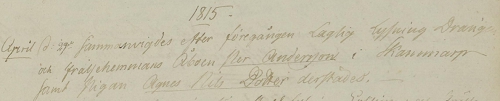 1815.
April d: 29. Sammanvigdes efter föregången Laglig Lysning Dräng
och Frälsehemmans Åboen Per Andersson i Skammarp
samt Pigan Agnes Nils Dotter derstädes.